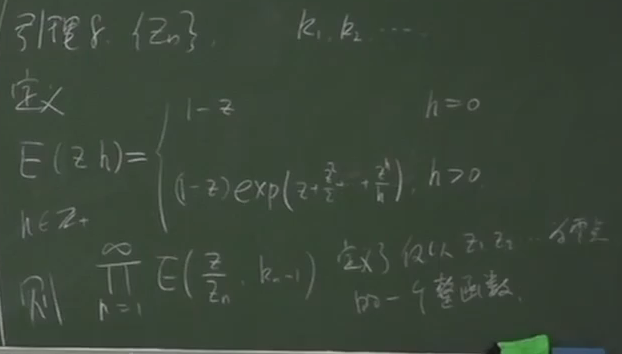 引理8. {Zn}, k₁, k₂ ⋯
定义
E(z h) = { 1-z h=0
(1-z)exp(z+z²/2+⋯+zʰ/h), h>0
h∈Z₊
则 ∏_{n=1}^{∞} E(z/zₙ, kₙ-1) 定义了仅以 z₁ z₂ ⋯ 为零点
的一个整函数.